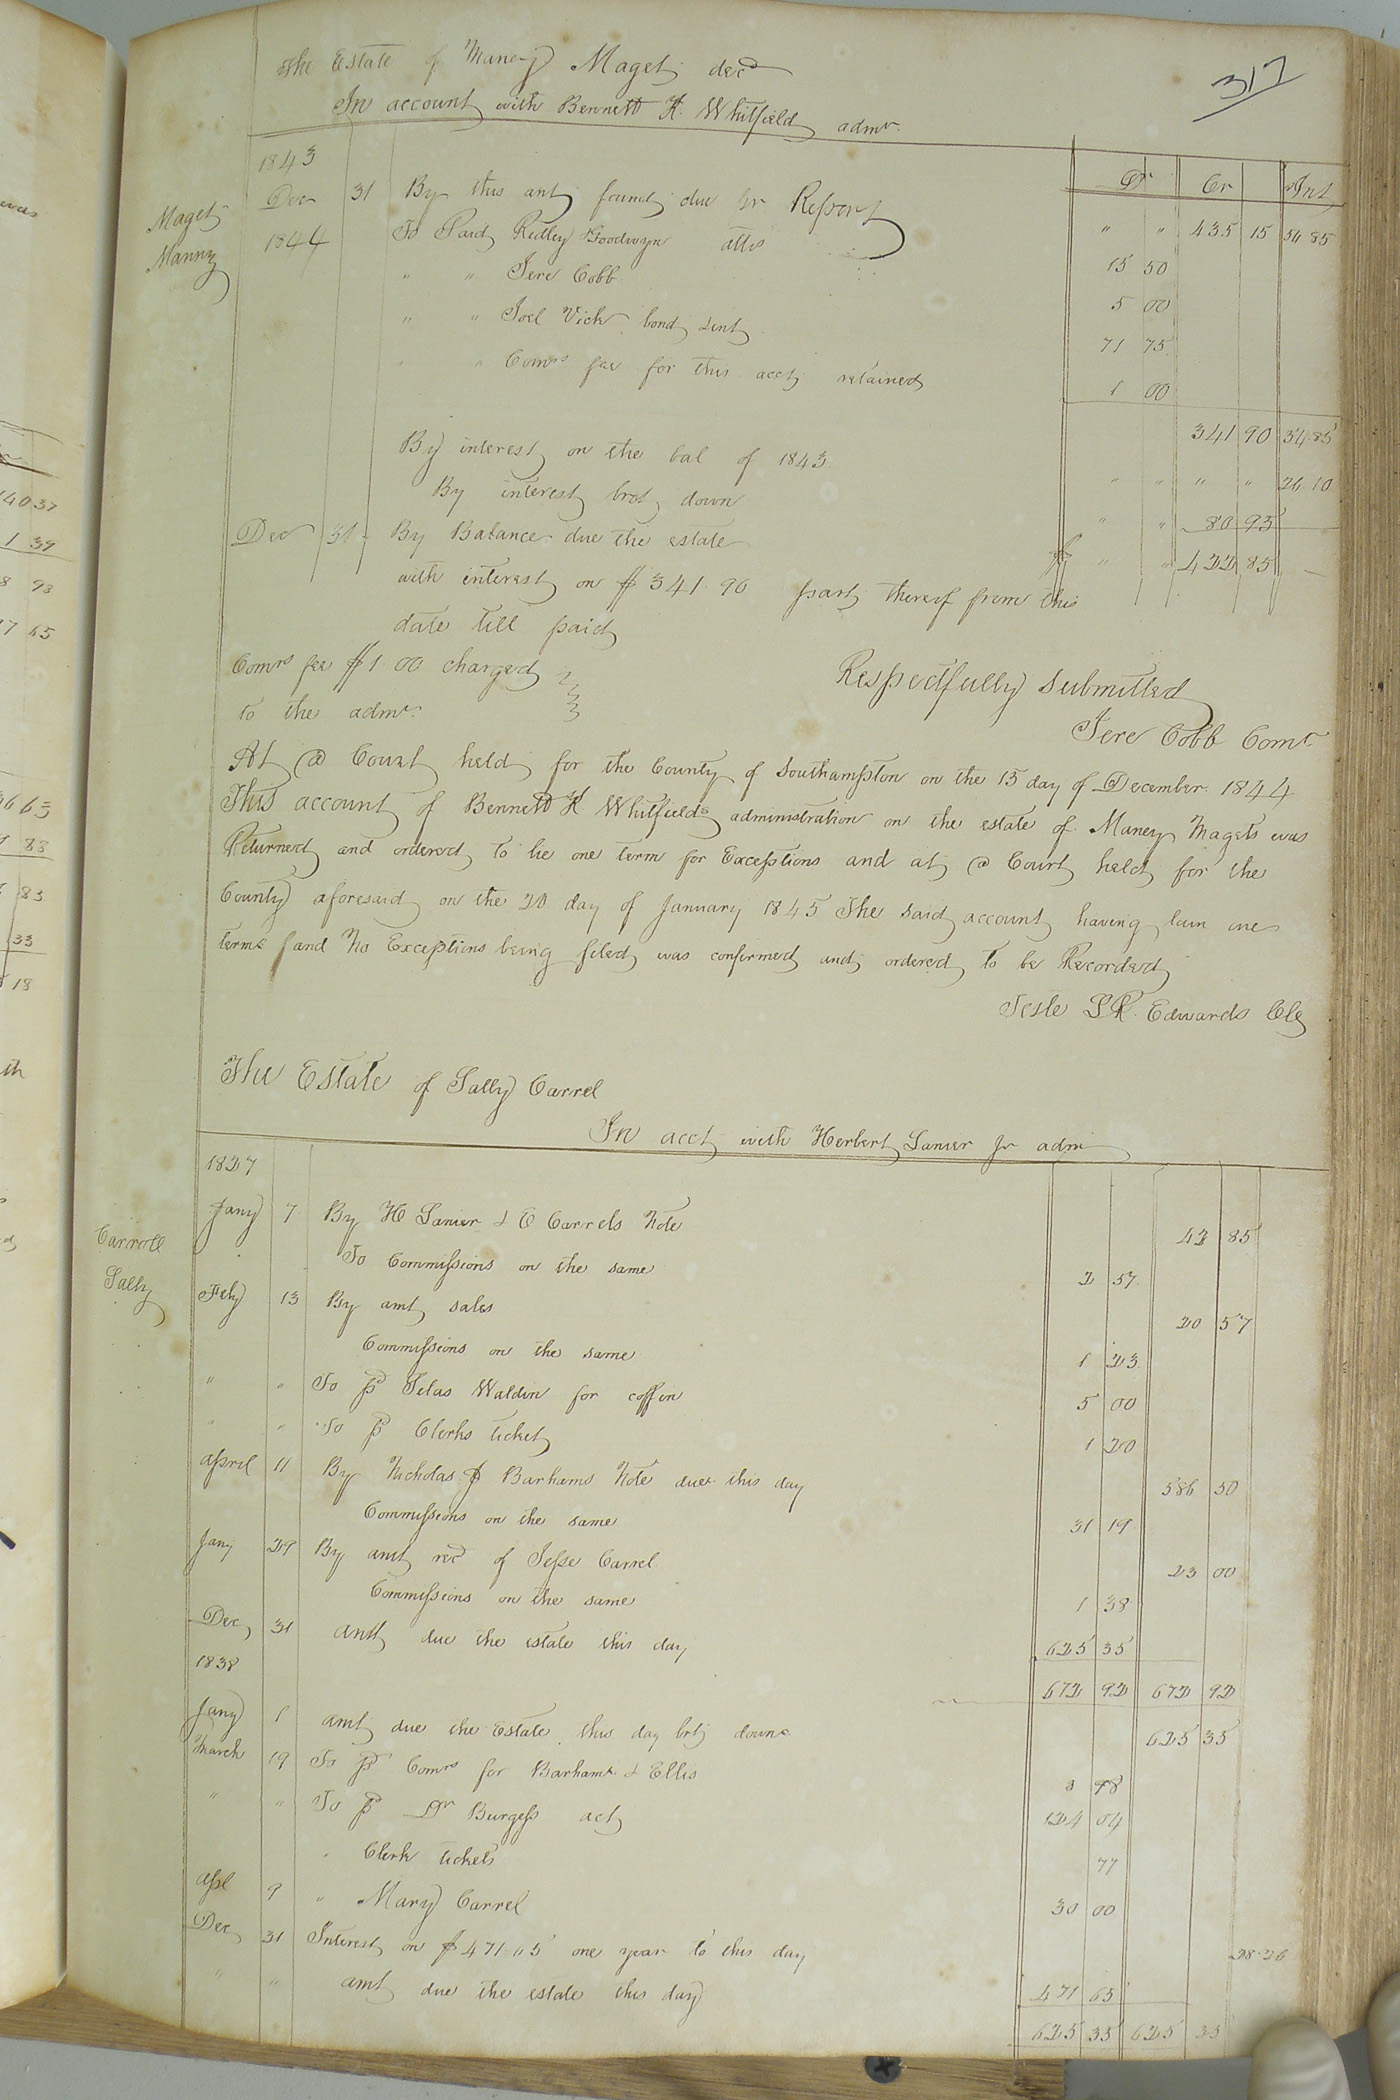 317
The Estate of Maney Maget decd
In account with Bennett H. Whitfield admr.
Dr Cr Int
1843
Dec 31 By this amt found due pr Report " " 435 15 54 85
Maget
Manny
1844 To Paid Ridley Goodwyn attis 15 50
" " Jere Cobb 5 00
" " Joel Vick bond & int 71 75
" " Comrs fee for this acct retained 1 00
341 90 54 85
By interest on the bal of 1843 " " " " 26 10
By interest brot down " " 80 95
Dec 31 By Balance due the estate $ " " 422 85
with interest on $341.90 part thereof from this
date till paid
Comrs fee $1.00 charged
to the admr.
Respectfully submitted
Jere Cobb Comr
At a Court held for the County of Southampton on the 15 day of December 1844
This account of Bennett H Whitfields administration on the estate of Maney Magets was
Returned and ordered to lie one term for Exceptions and at a Court held for the
County aforesaid on the 20 day of January 1845 The said account having lain one
term & and No Exceptions being filed was confirmed and ordered to be Recorded
Teste L R. Edwards Clk
The Estate of Sally Carrel
In acct with Herbert Lanier Jr adm
Carroll
Sally
1827
Jany 7 By H Lanier & C Carrels Note 42 85
To Commissions on the same 2 57
Feby 13 By amt sales 20 57
Commissions on the same 1 23
" " To pd Silas Waldin for coffin 5 00
" " To pd Clerks ticket 1 20
April 11 By Nicholas J Barhams Note due this day 586 50
Commissions on the same 31 19
Jany 29 By amt recd of Jesse Carrel 23 00
Commissions on the same 1 38
Dec 31 amt due the estate this day 625 35
672 92 672 92
1838
Jany 1 amt due the Estate this day brt down 625 35
March 19 To pd Comrs for Barham & Ellis
" " To pd Dr Burgess act 124 04
" Clerk tickets 77
Apl 9 " Mary Carrel 30 00
Dec 31 Interest on $471.05 one year to this day 28.26
" " amt due the estate this day 471 65
625 35 625 35